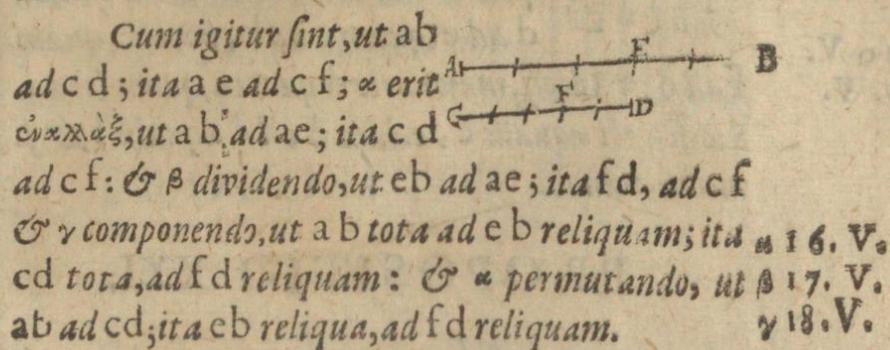 Cum igitur ſint, ut ab
ad cd; ita ae ad cf; α erit
ἐναλλὰξ, ut ab ad ae; ita cd
ad cf: & β dividendo, ut eb ad ae; ita fd, ad cf
& γ componendo, ut ab tota ad eb reliquam; ita
cd tota, ad fd reliquam: & α permutando, ut
ab ad cd; ita eb reliqua, ad fd reliquam.
A E B
C F D
α 16. V.
β 17. V.
γ 18. V.